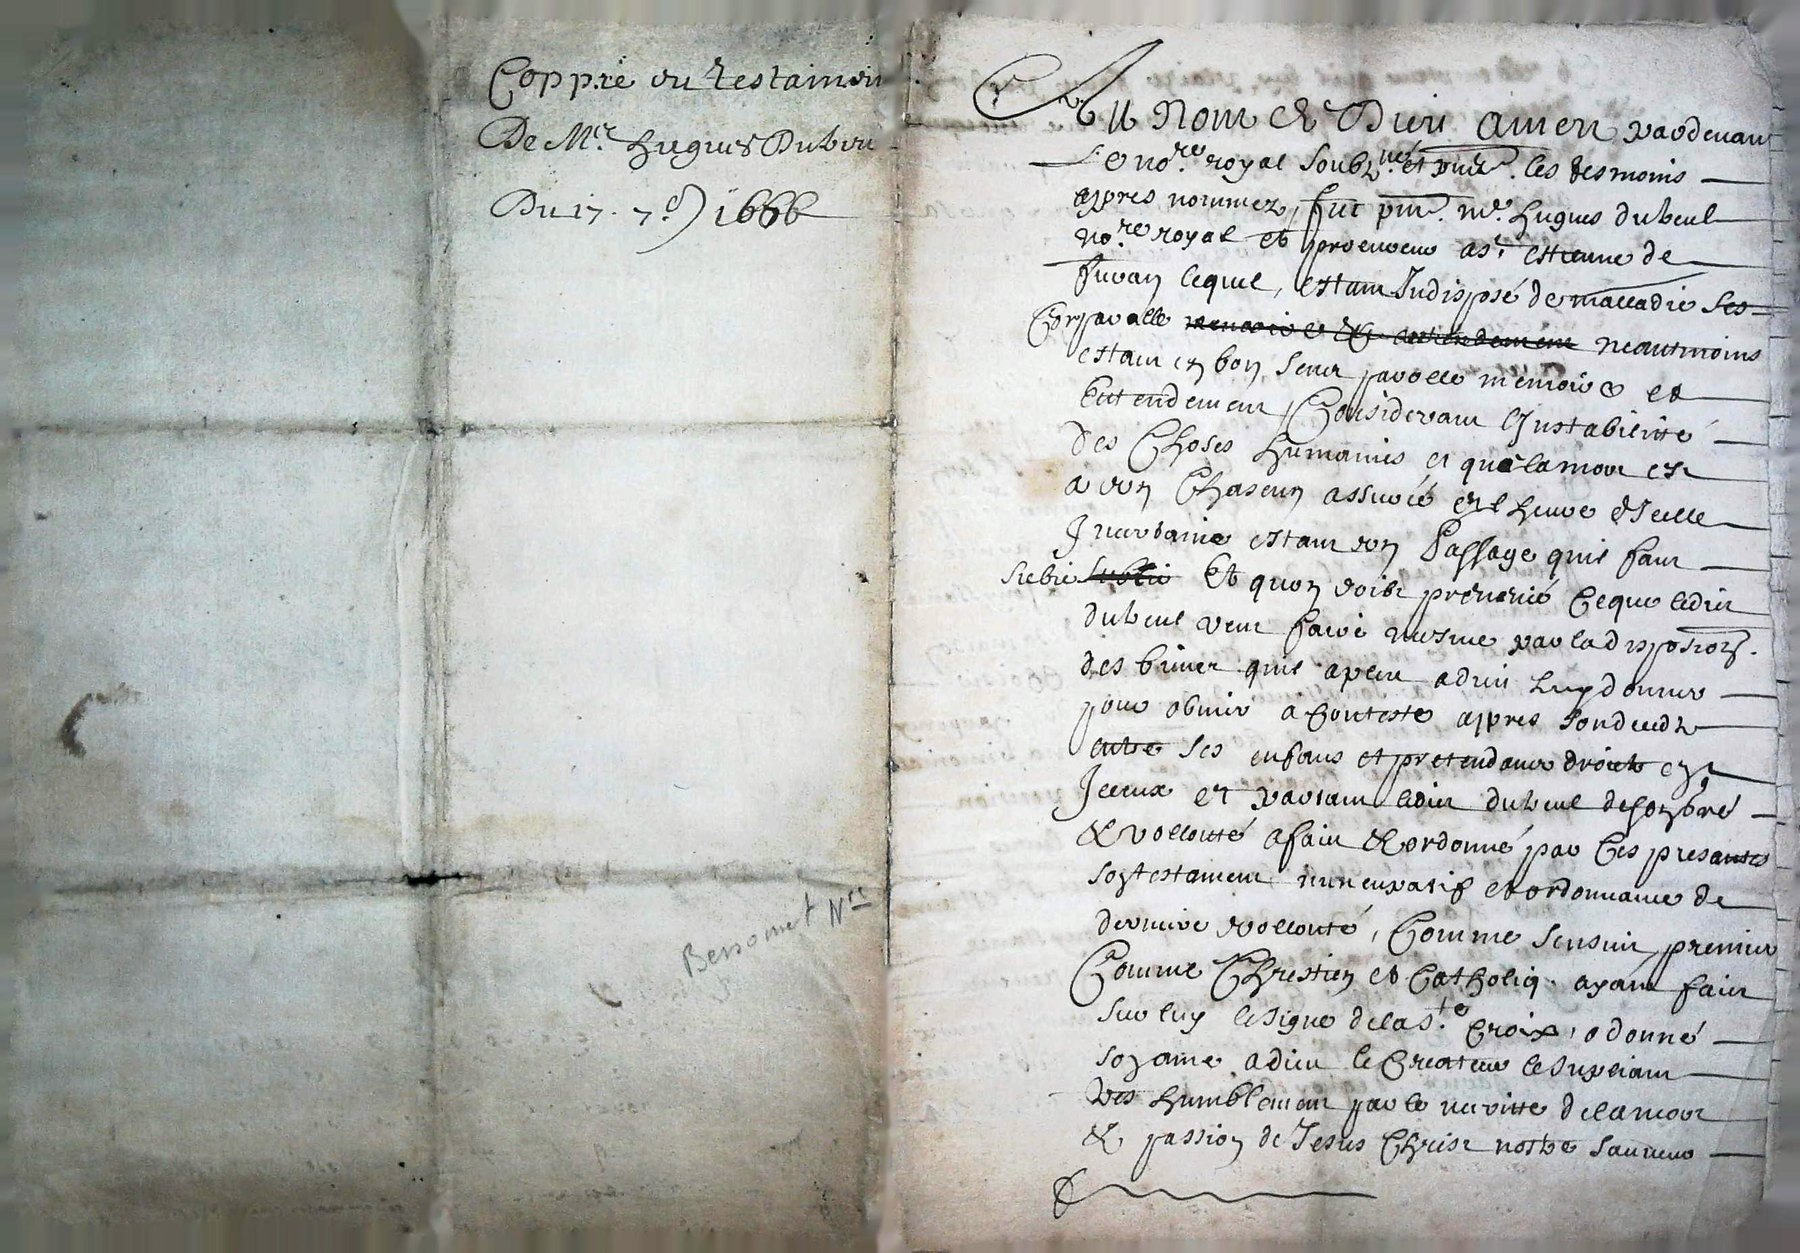 Coppie du Testamen
De Mre. Hugues Dubeu
Du 17. 7e) 1666
Bessomet Nre
Au Nom de Dieu amen pardevan
Le nore. royal soubzné et pnt. les tesmoins
appres nommez, fut pnt. me. hugues dubeul
nore. royal et procureur a st. estienne de
furan lequel, estant Indisposé de malladie
Corporalle neautmoins
estant en bon sens parolle memoire et
Entendement, Considerant l'Instabilitté
des Choses humaines et que la mort est
a un Chascun assuré et l'heure d'Icelle
Incertaine estant un Passage quil faut
subir subir Et quon doibt prevenir Ce que ledit
dubeul veut faire mesme par la disposion.
des biens quil a pleu a dieu luy donner
pour obvier a Conteste appres son deceds
entre ses enfans et pretendans droict en
Iceux et partant ledit dubeul de son gré
& vollonté a fait & ordonné par Ces presantes
son testament nuncupatif et ordonnance de
derniere vollonté, Comme sensuit, premier
Comme Chrestien et Catholiq. ayant fait
sur luy le signe de la ste. Croix, a donné
son ame a dieu le Createur le supliant
tres humblement par le meritte de la mort
& passion de Jesus Christ nostre sauveur